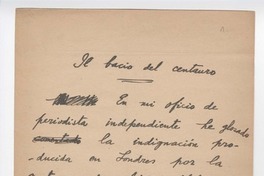 Il bacio del centauro
En mi oficio de
periodista independiente he glosado
la indignación pro-
ducida en Londres por la